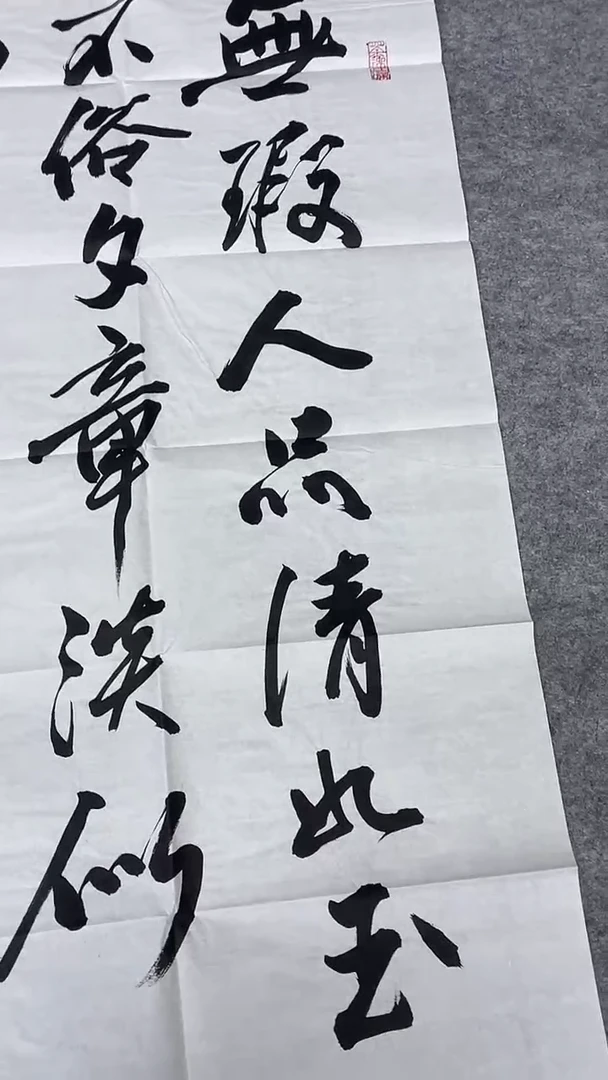 無瑕人品清如玉
不俗文章淡似